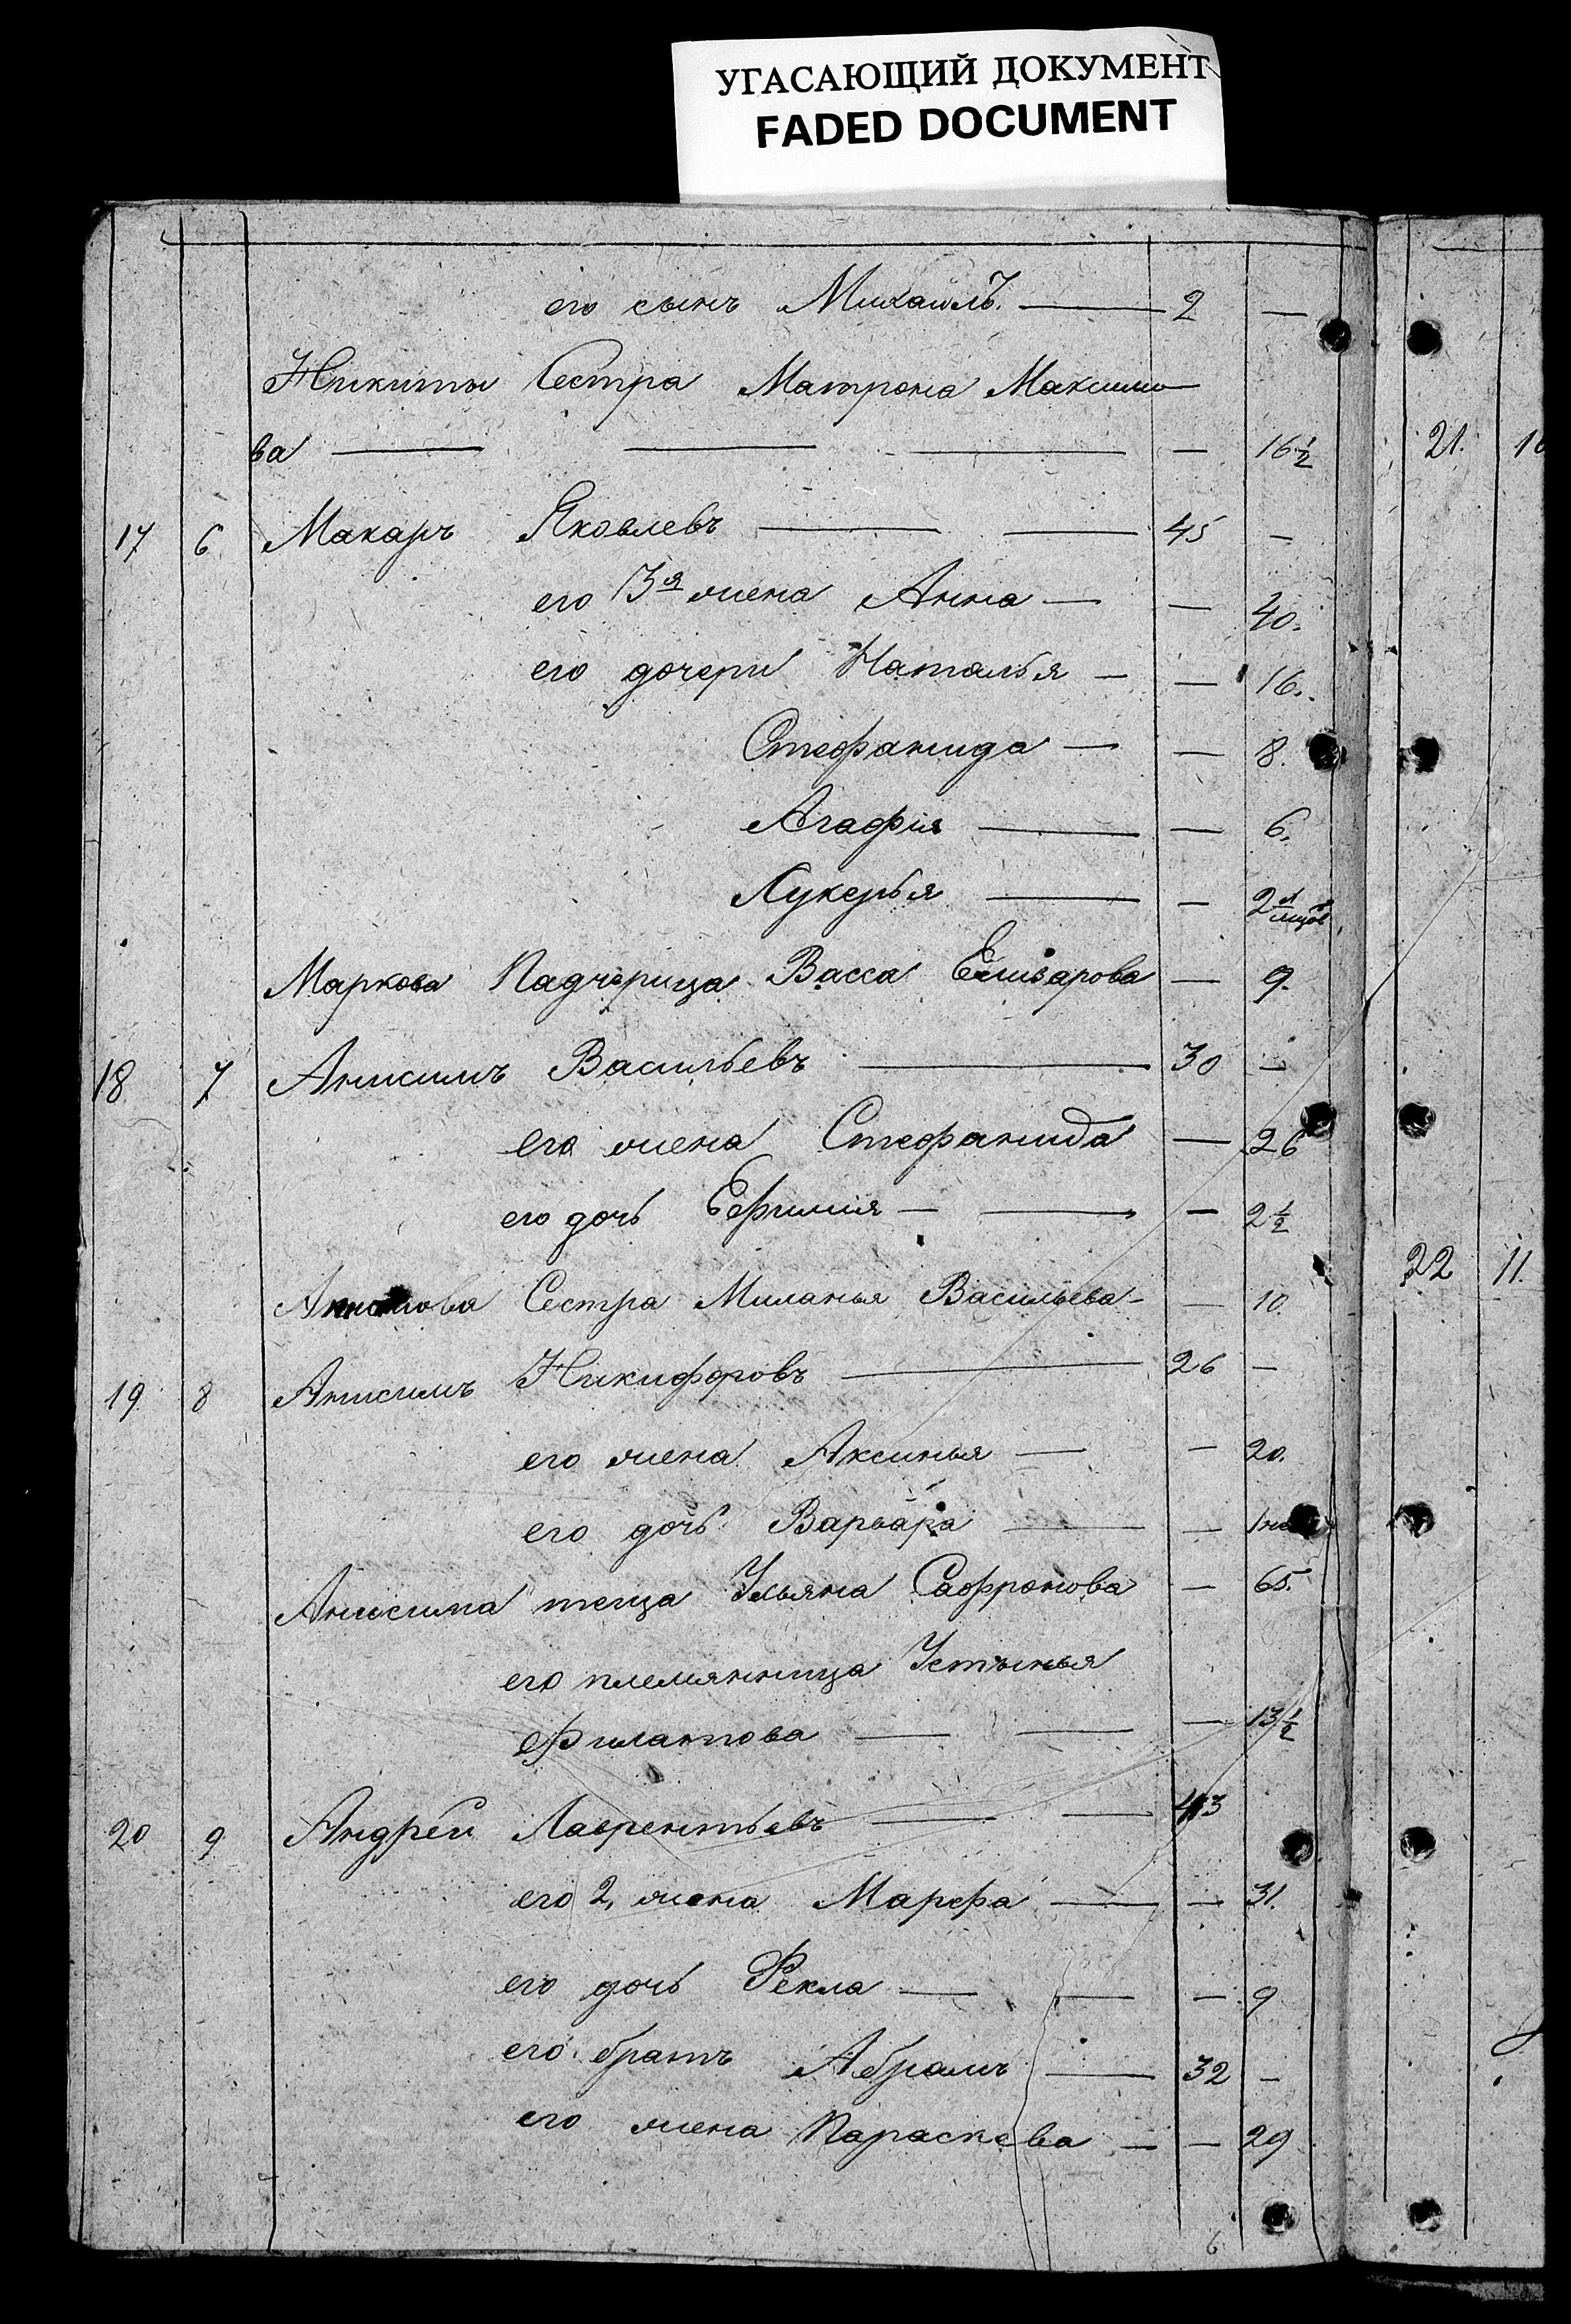 УГАСАЮЩИЙ ДОКУМЕНТ
FADED DOCUMENT
его сынъ Михаилъ. — 2 —
Никиты Сестра Матрона Максимо
ва — — — — 16 1/2
17 6 Макаръ Яковлевъ — — 45 —
его 3я жена Анна — — 40.
его дочери Наталья — — 16.
Стефанида — — 8.
Агафия — — 6.
Лукерья — — 2
Маркова Падчерица Васса Елизарова — 9.
18 7 Анисимъ Васильевъ — 30 —
его жена Стефанида — 26
его дочь Ефимия — — — 2 1/2
Сестра Миланья Васильева — — 10.
19 8 Анисимъ Никифоровъ — 26 —
его жена Аксинья — — 20.
его дочь Варвара — —
Анисима теща Ульяна Сафронова — 65.
его племянница Устинья
Филатова — — — 13 1/2
20 9 Андрей Лаврентьевъ — — 43
его 2, жена Марфа — — 31.
его дочь Фекла — — — 9
его братъ Абрамъ — 32 —
его жена Параскева — — 29
6
21. 10
22 11.